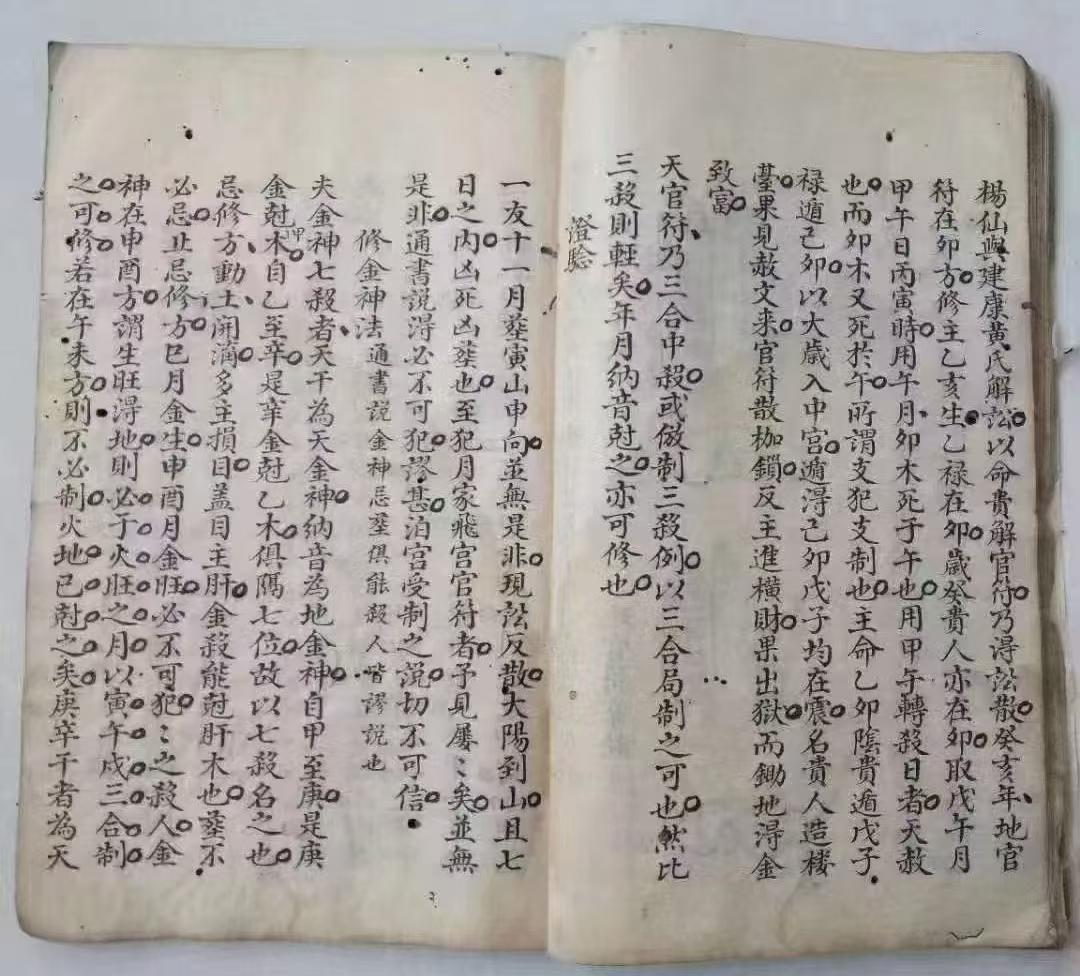 楊仙與建康黃氏解訟以命貴解官符乃得訟散癸亥年地官
符在卯方修主乙亥生乙祿在卯歲癸貴人亦在卯取戊午月
甲午日丙寅時用午月卯木死于午也用甲午轉殺日者天赦
也而卯木又死於午所謂支犯支制也主命乙卯陰貴遁戊子
祿遁己卯以大歲入中宮遁得己卯戊子均在震名貴人造楼
臺果見赦文来官符散枷鎖反主進橫財果出獄而鋤地得金
致富
天官符乃三合中殺或倣制三殺例以三合局制之可也然比
三殺則輕矣年月納音尅之亦可修也
證驗
一友十一月塟寅山申向並無是非現訟反散大陽到山且七
日之內凶死凶塟也至犯月家飛宮官符者予見屢〻矣並無
是非通書說淂必不可犯謬甚泊宮受制之說切不可信
修金神法通書説金神忌塟俱能殺人皆謬説也
夫金神七殺者天干為天金神納音為地金神自甲至庚是庚
金尅甲木自乙至辛是辛金尅乙木俱隔七位故以七殺名之也
忌修方動土開溝多主損目盖目主肝金殺能尅肝木也塟不
必忌止忌修方巳月金生申酉月金旺必不可犯〻之殺人金
神在申酉方謂生旺淂地則必于火旺之月以寅午戌三合制
之可修若在午未方則不必制火地已尅之矣庚辛干者為天